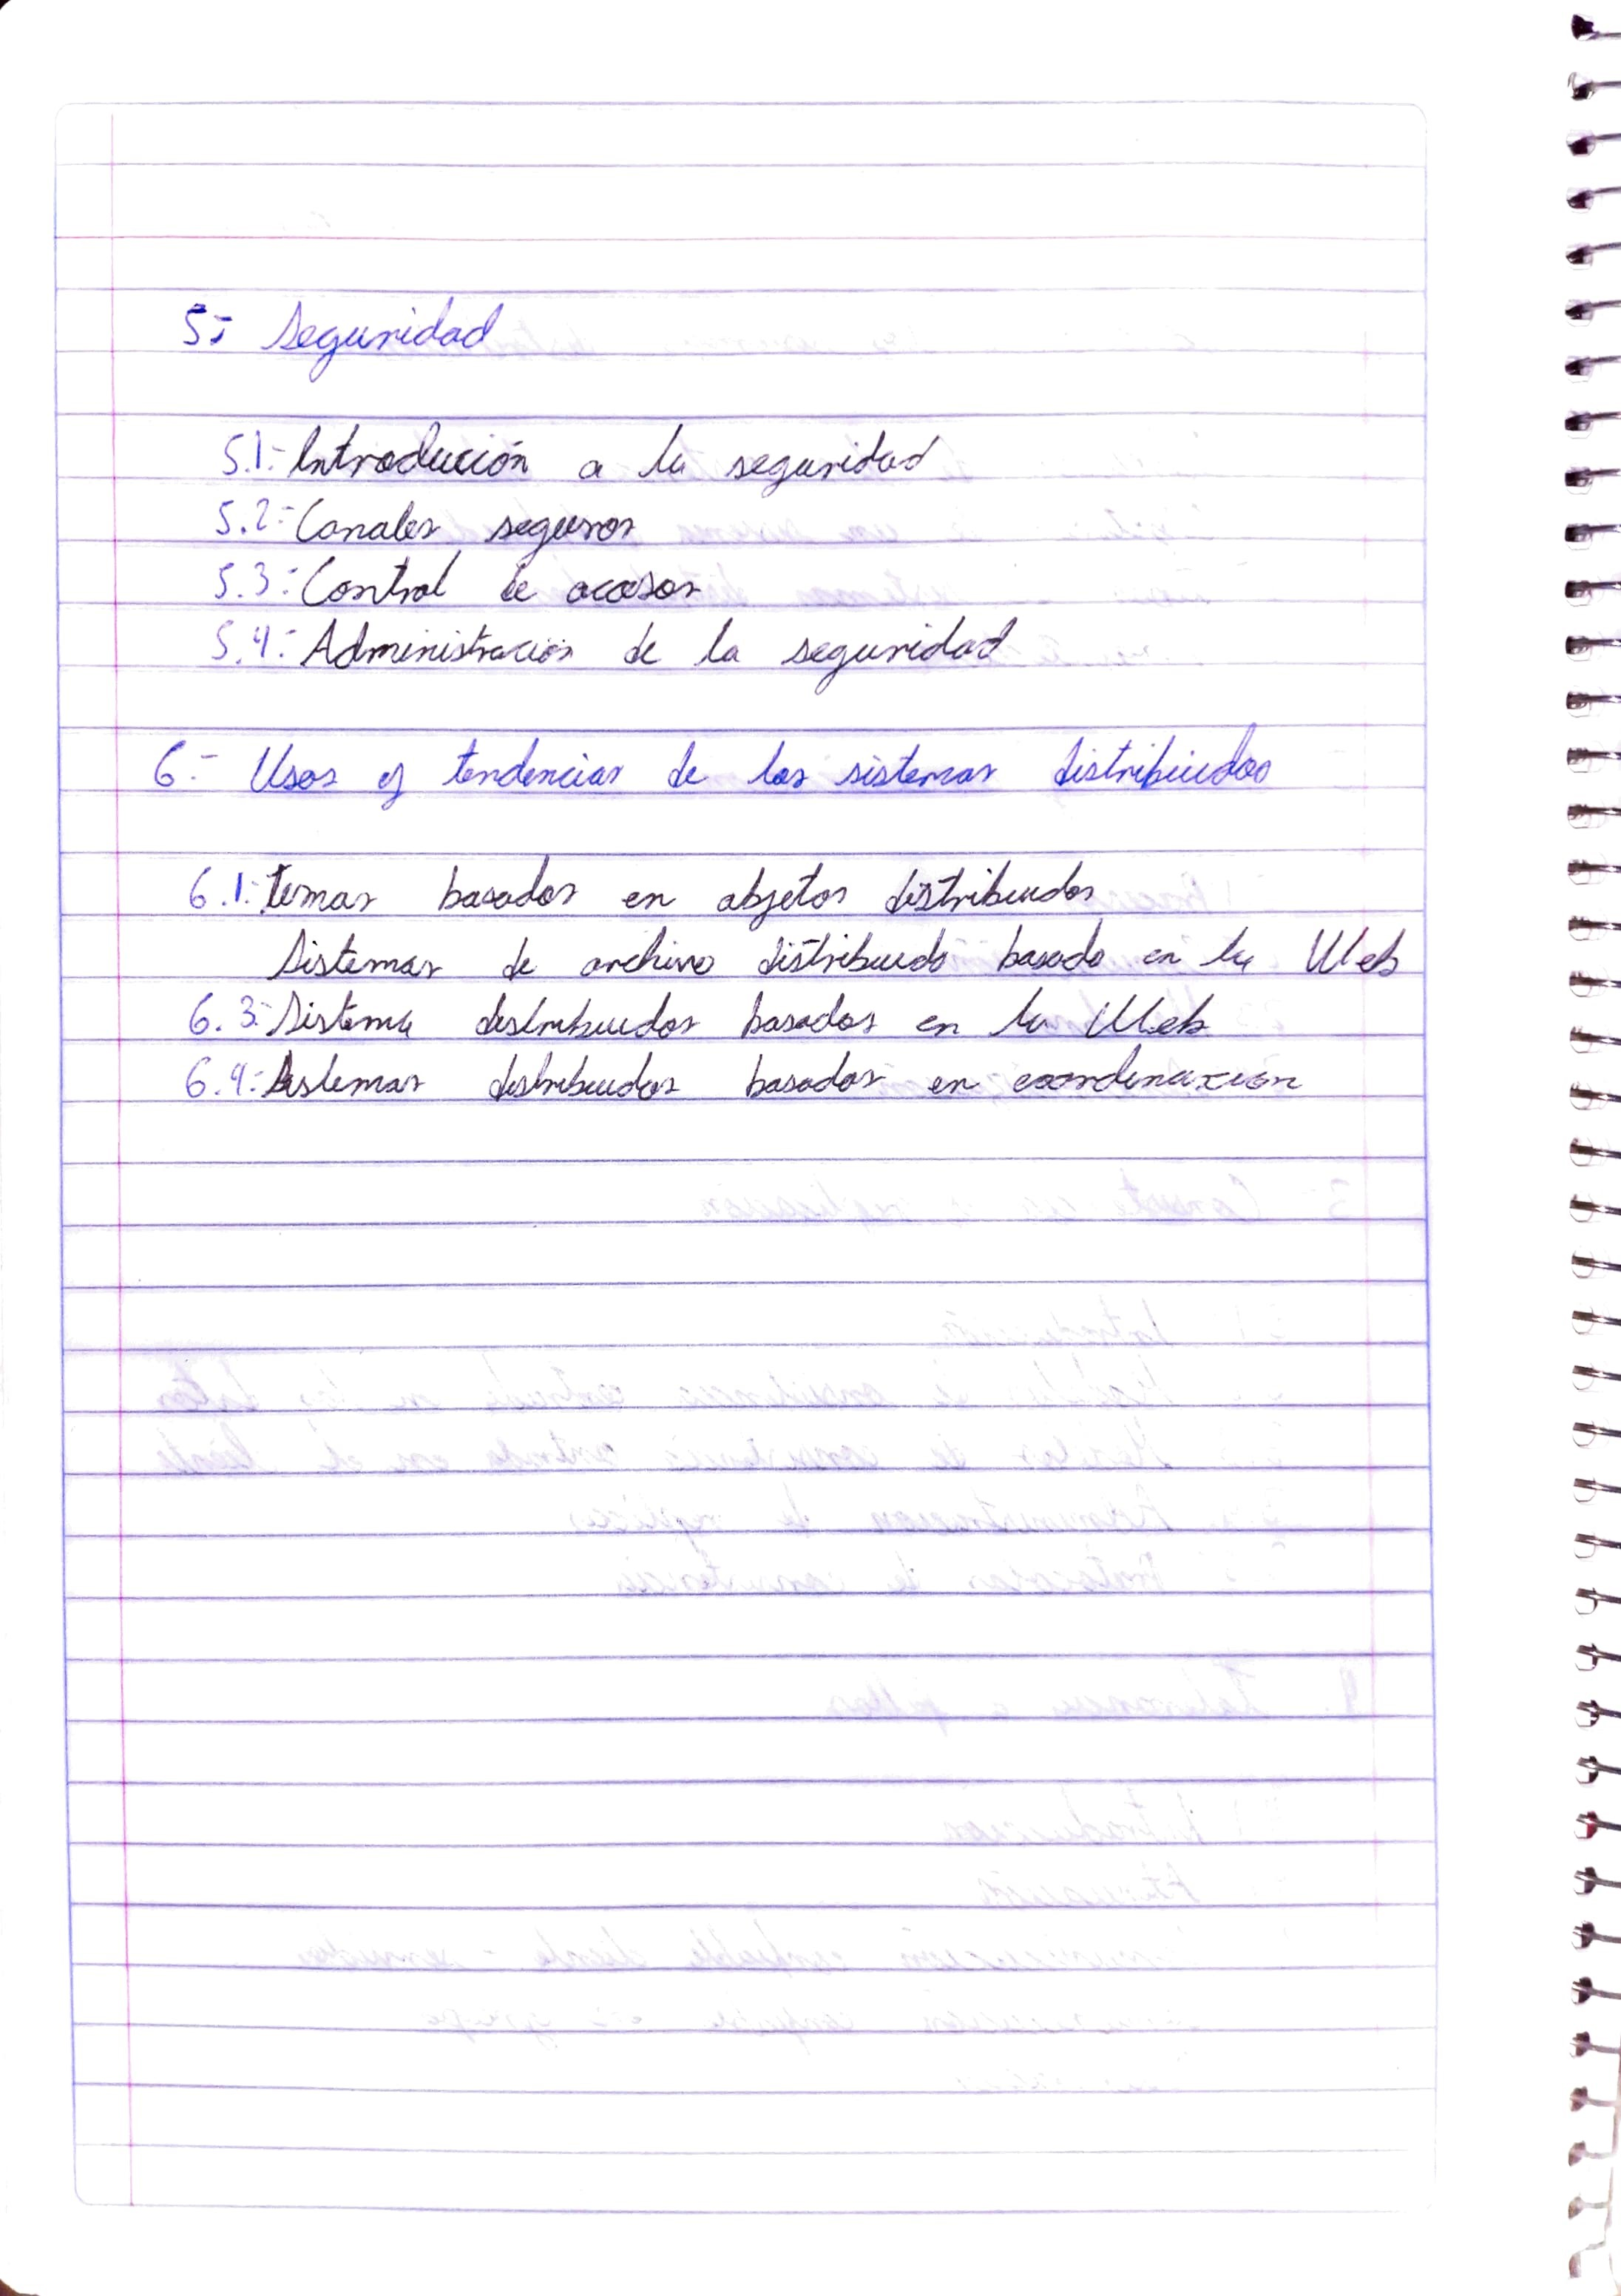 5.- Seguridad
5.1.- Introdución a la seguridad
5.2.- Canales seguros
5.3.- Control de acasos
5.4.- Administración de la seguridad
6.- Usos y tendencias de los sistemas distribuidos
6.1.- temas basados en objetos distribuidos
Sistemas de archivo distribuido basado en la Web
6.3.- Sistema distribuidos basados en la Web
6.4.- Sistemas distribuidos basados en coordinación